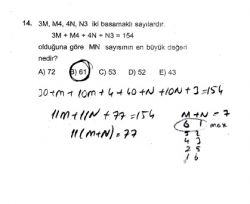 14. 3M, M4, 4N, N3 iki basamaklı sayılardır.
3M + M4 + 4N + N3 = 154
olduğuna göre MN sayısının en büyük değeri
nedir?
A) 72 B) 61 C) 53 D) 52 E) 43
30+m+10m+4+40+N+10N+3=154
11m+11N+77=154
11(m+N)=77
M+N=7
6 1 max
5 2
4 3
2 5
1 6